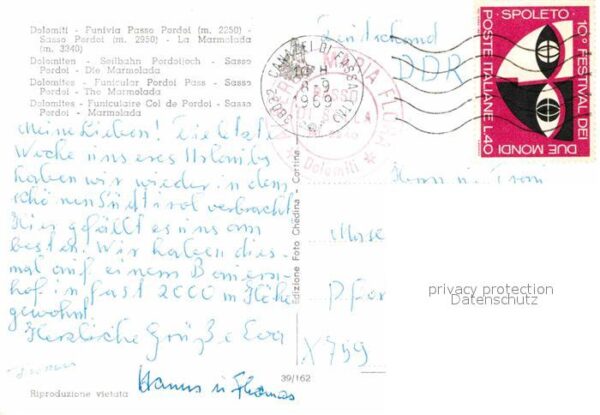 Dolomiti - Funivia Passo Pordoi (m. 2250) -
Sasso Pordoi (m. 2950) - La Marmolada
(m. 3340)
Dolomiten - Seilbahn Pordoijoch - Sasso
Pordoi - Die Marmolada
Dolomites - Funicular Pordoi Pass - Sasso
Pordoi - The Marmolada
Dolomites - Funiculaire Col de Pordoi - Sasso
Pordoi - Marmolada
Meine Lieben! Die letzte
Woche unseres Urlaubs
haben wir wieder in dem
schönen Südtirol verbracht
Hier gefällt es uns am
besten. Wir haben dies-
mal auf einem Bauern-
hof in fast 2000 m Höhe
gewohnt.
Herzliche Grüße Eva
Hannes u. Thomas
Riproduzione vietata
39/162
Edizione Foto Ghedina - Cortina
CANAZEI DI FASSA (TN)
38032
8-9
1969
MARIA FLORA
Dolomiti
Deutschland
DDR
X 799
privacy protection
Datenschutz
SPOLETO
10° FESTIVAL DEI
DUE MONDI
POSTE ITALIANE L.40